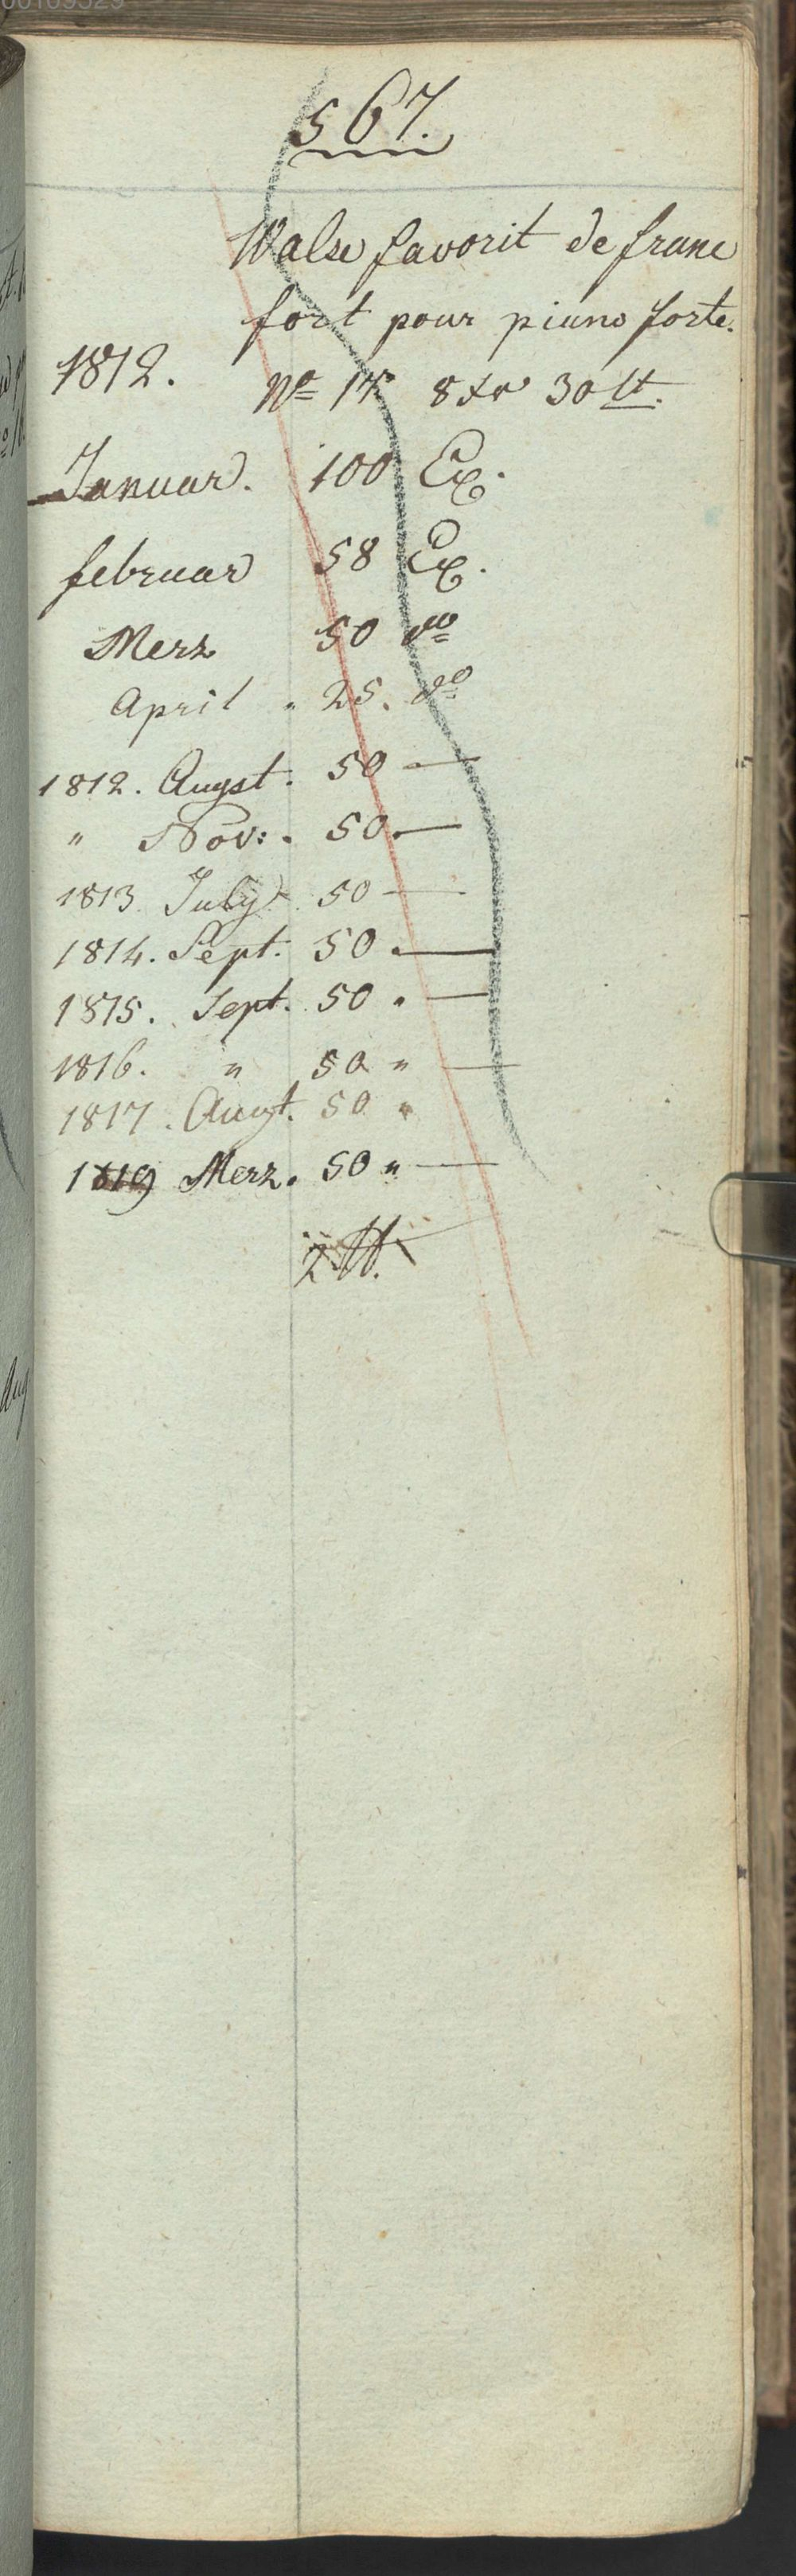 567.
Walse favorit de franc
fort pour piano forte.
1812. No 17 8 xr 30 lt.
Januar. 100 Ex.
februar 58 Ex.
Merz 50 do
April . 25. do
1812. Augst. 50 —
" Nov: . 50. —
1813 July 50 —
1814. Sept. 50 . —
1815. Sept. 50 . —
1816. " 50 " —
1817. Augt. 50 "
1819 Merz. 50 " —